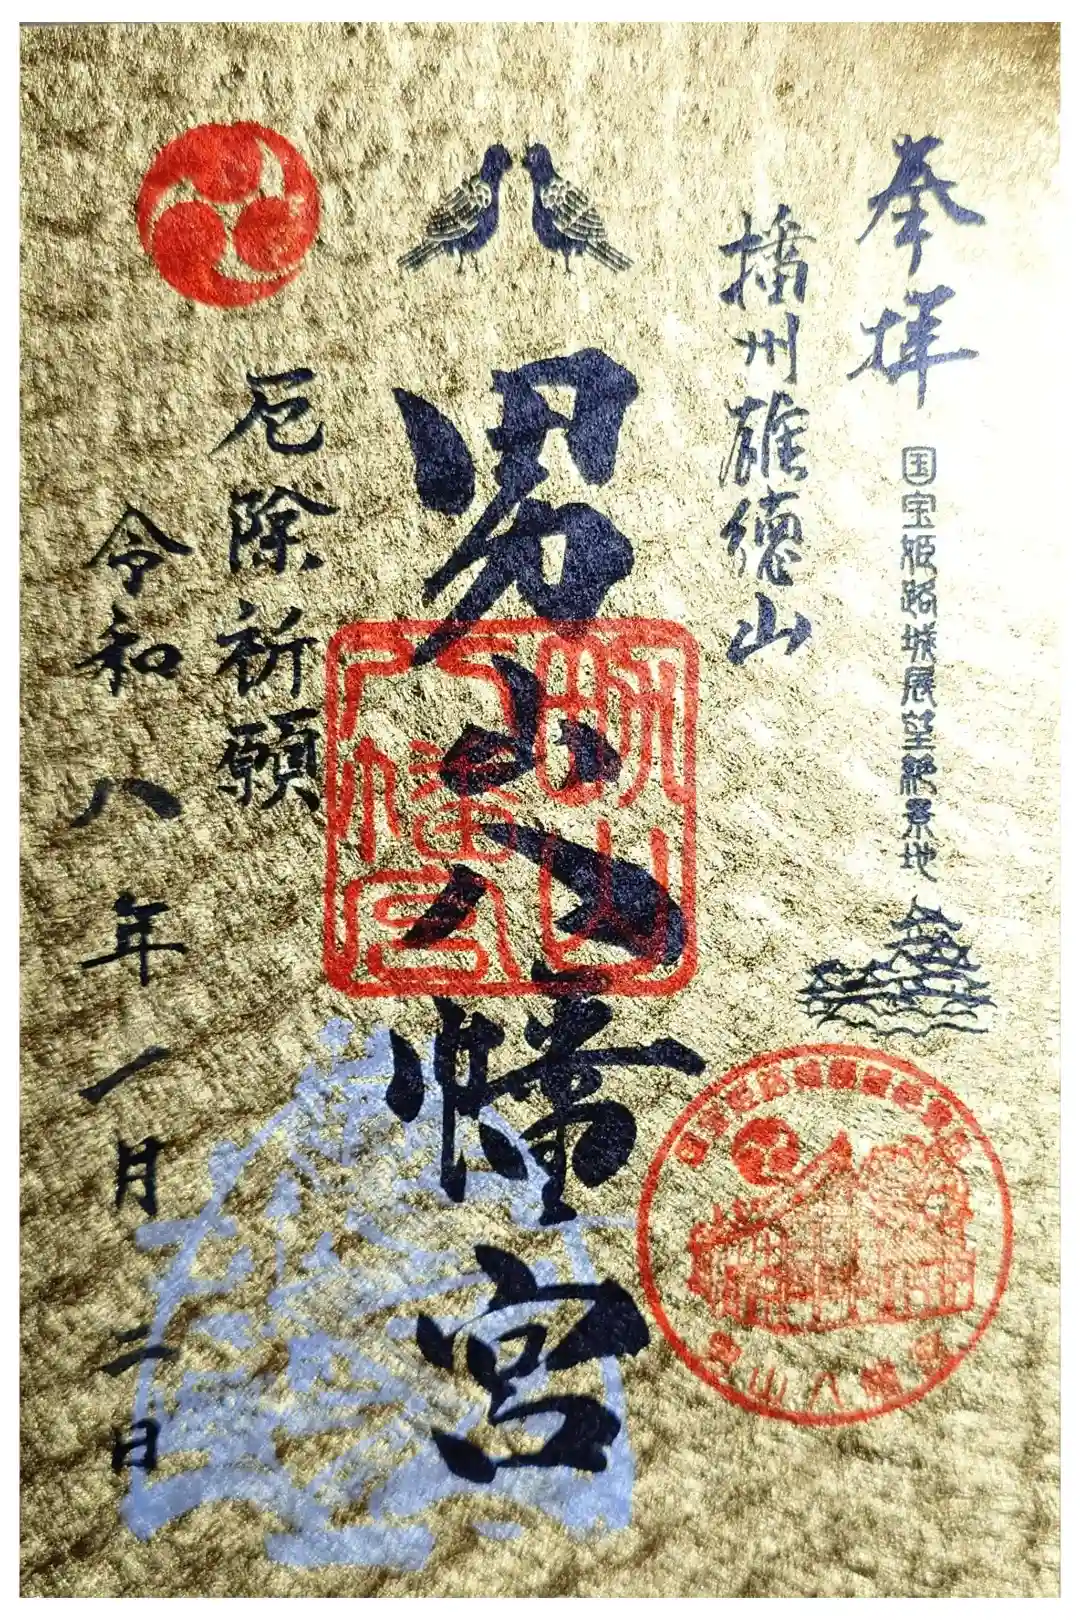 奉拝
国宝姫路城展望絶景地
播州雄徳山
男山八幡宮
男山八幡宮
厄除祈願
令和八年一月二日
男山八幡宮